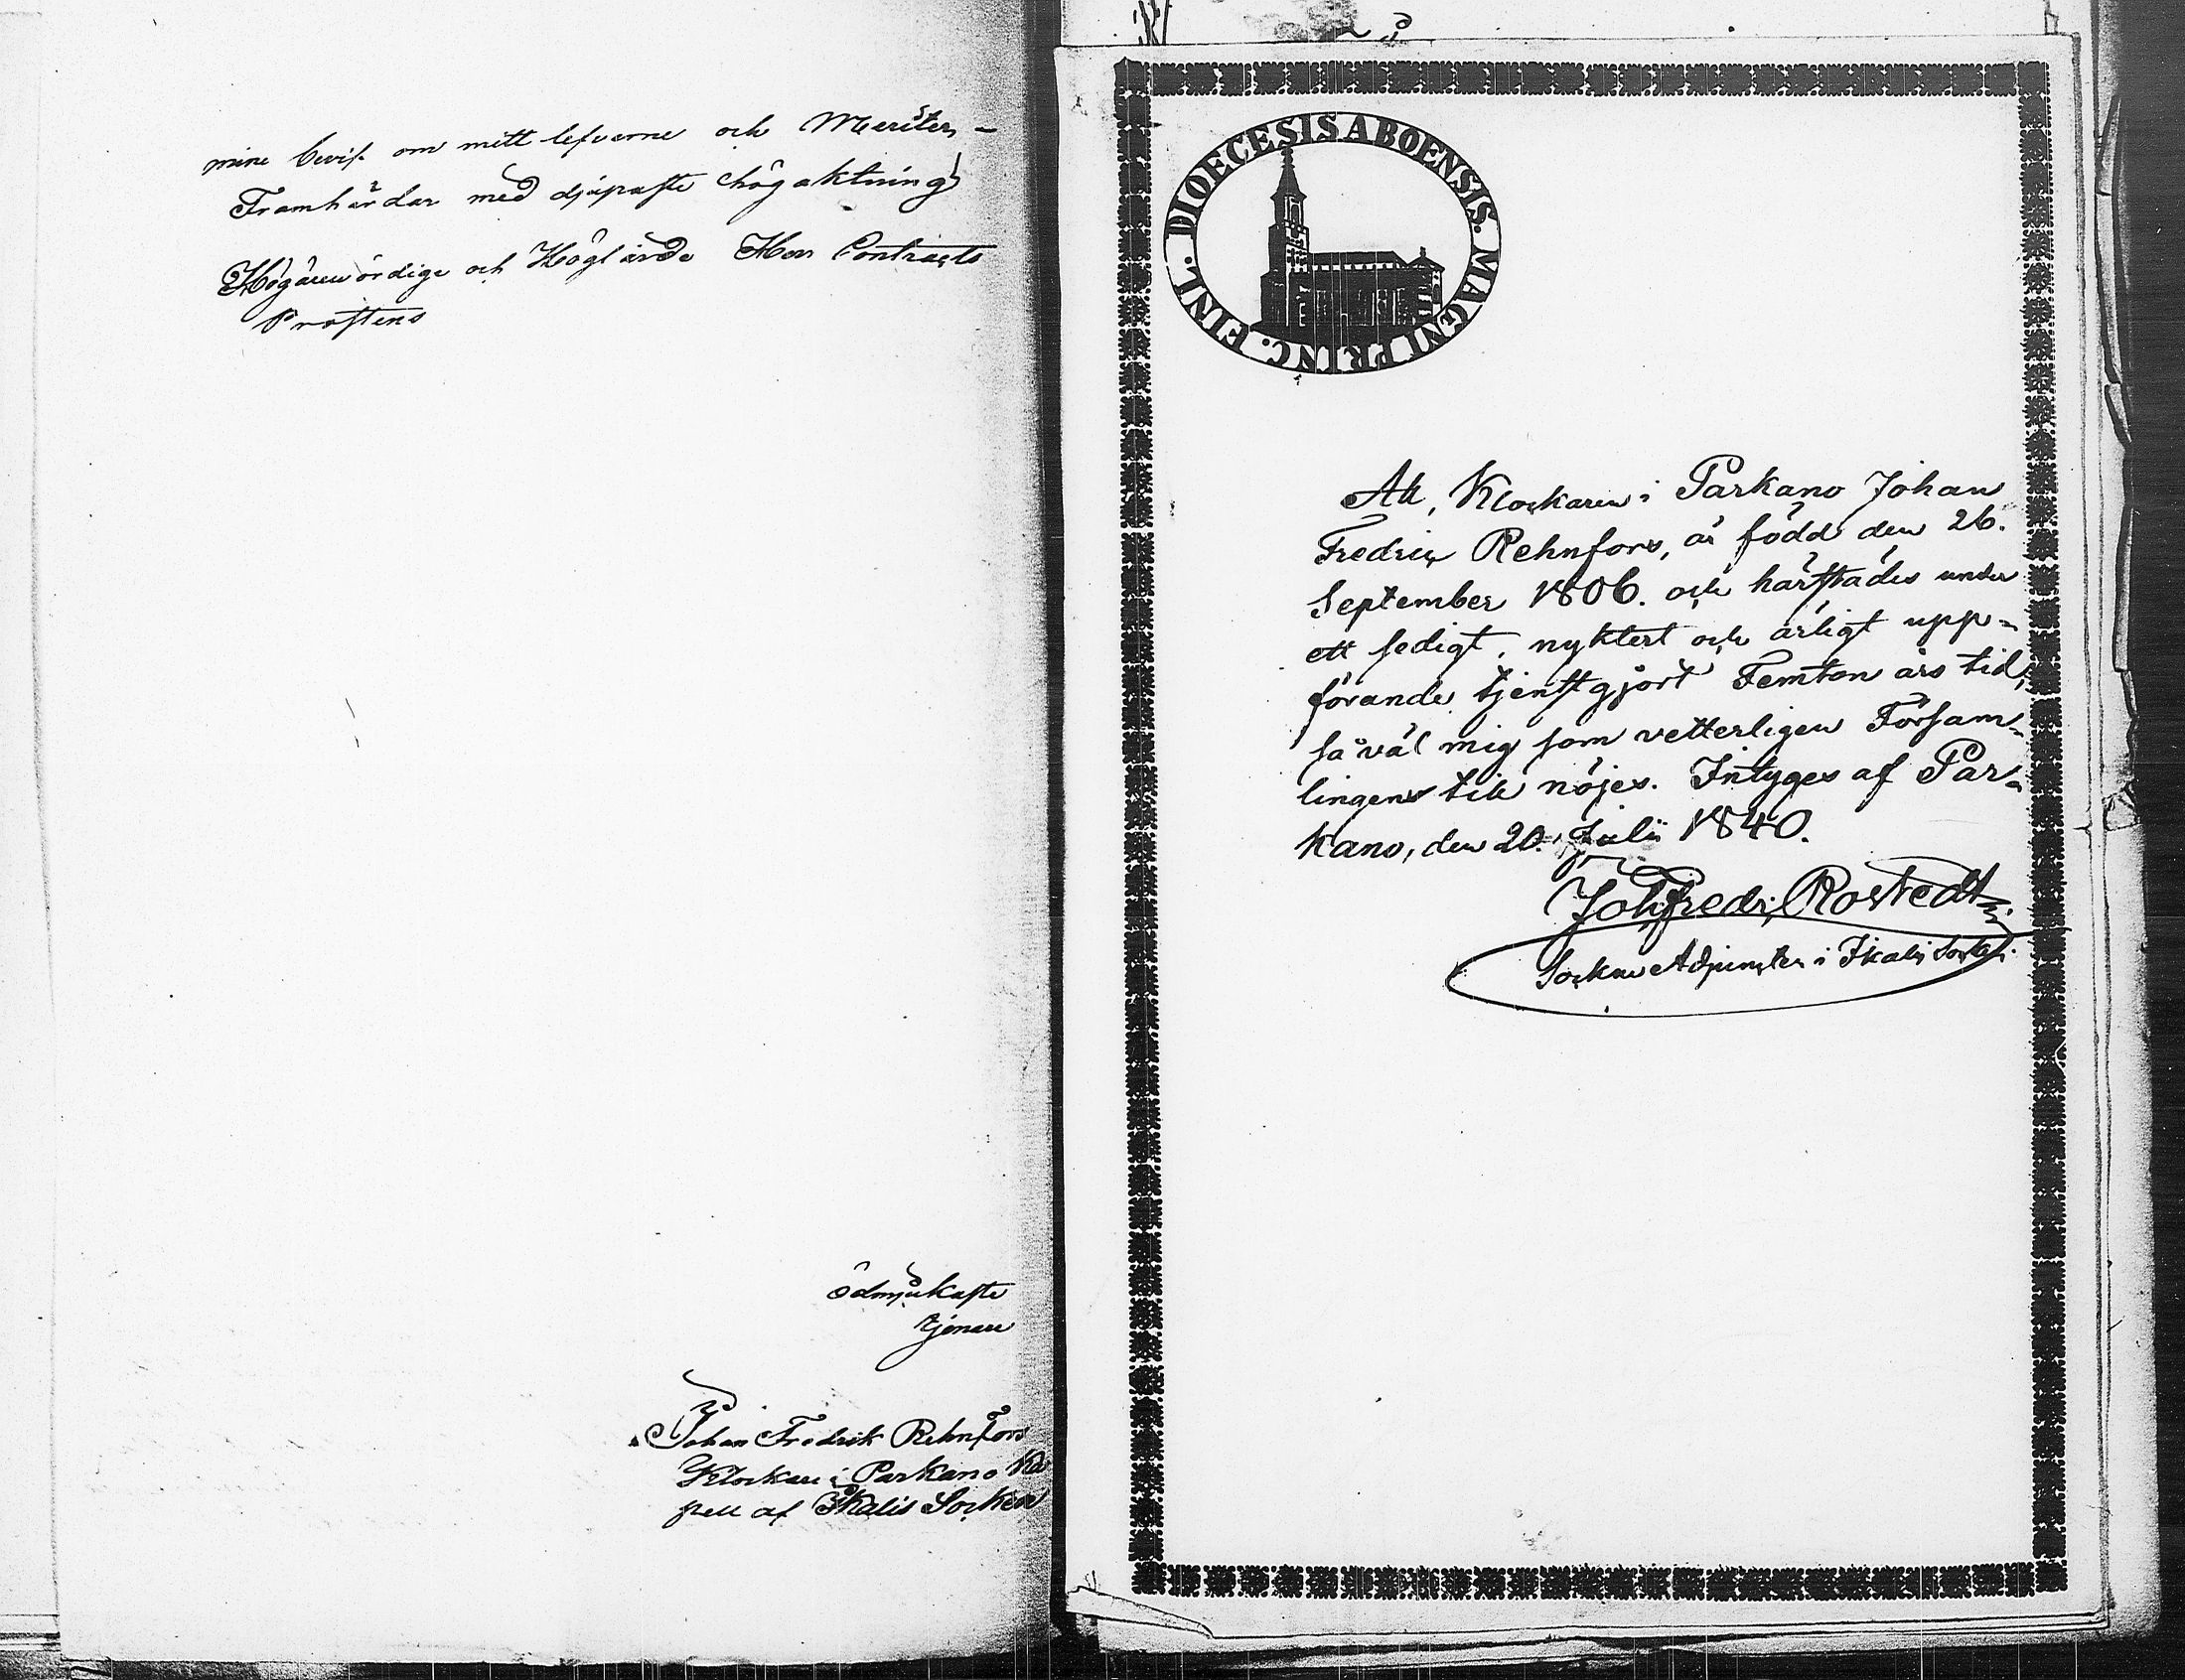 mine bevis om mitt lefverne och Meriter, –
Framhärdar med djupaste högaktning
Högärewördige och Höglärde Herr Contracts
Prostens
ödmjukaste
tjenare
Johan Fredrik Rehnfors
Klockare i Parkano Ka
pell af Ikalis Socken
DIOECESIS ABOENSIS. MAGNI PRINC. FINL.
Att, Klockaren i Parkano Johan
Fredric Rehnfors, är född den 26.
September 1806. och härstädes under
ett sedigt, nyktert och ärligt upp-
förande tjenstgjort Femton års tid,
såväl mig som vetterligen Försam-
lingens till nöjes. Intyges af Par-
kano, den 20. Julii 1840.
Joh Fredr. Rostedt
Sockne Adjuncten i Ikalis Sockn.